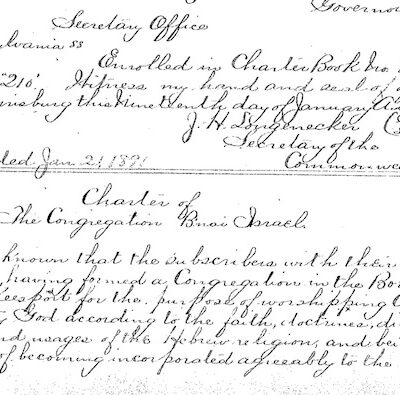 Governor
Secretary Office
sylvania ss
Enrolled in Charter Book No.
"210". Witness my hand and seal of
risburg this Nineteenth day of January A.D.
J. H. Longenecker
Secretary of the
Commonwe
ded Jan 21 1891
Charter of
The Congregation Bnai Israel.
known that the subscribers with their
, having formed a Congregation in the Bor
Keesport for the purposes of worshipping
God according to the faith, doctrines, di
nd usages of the Hebrew religion, and bei
of becoming incorporated agreeably to the